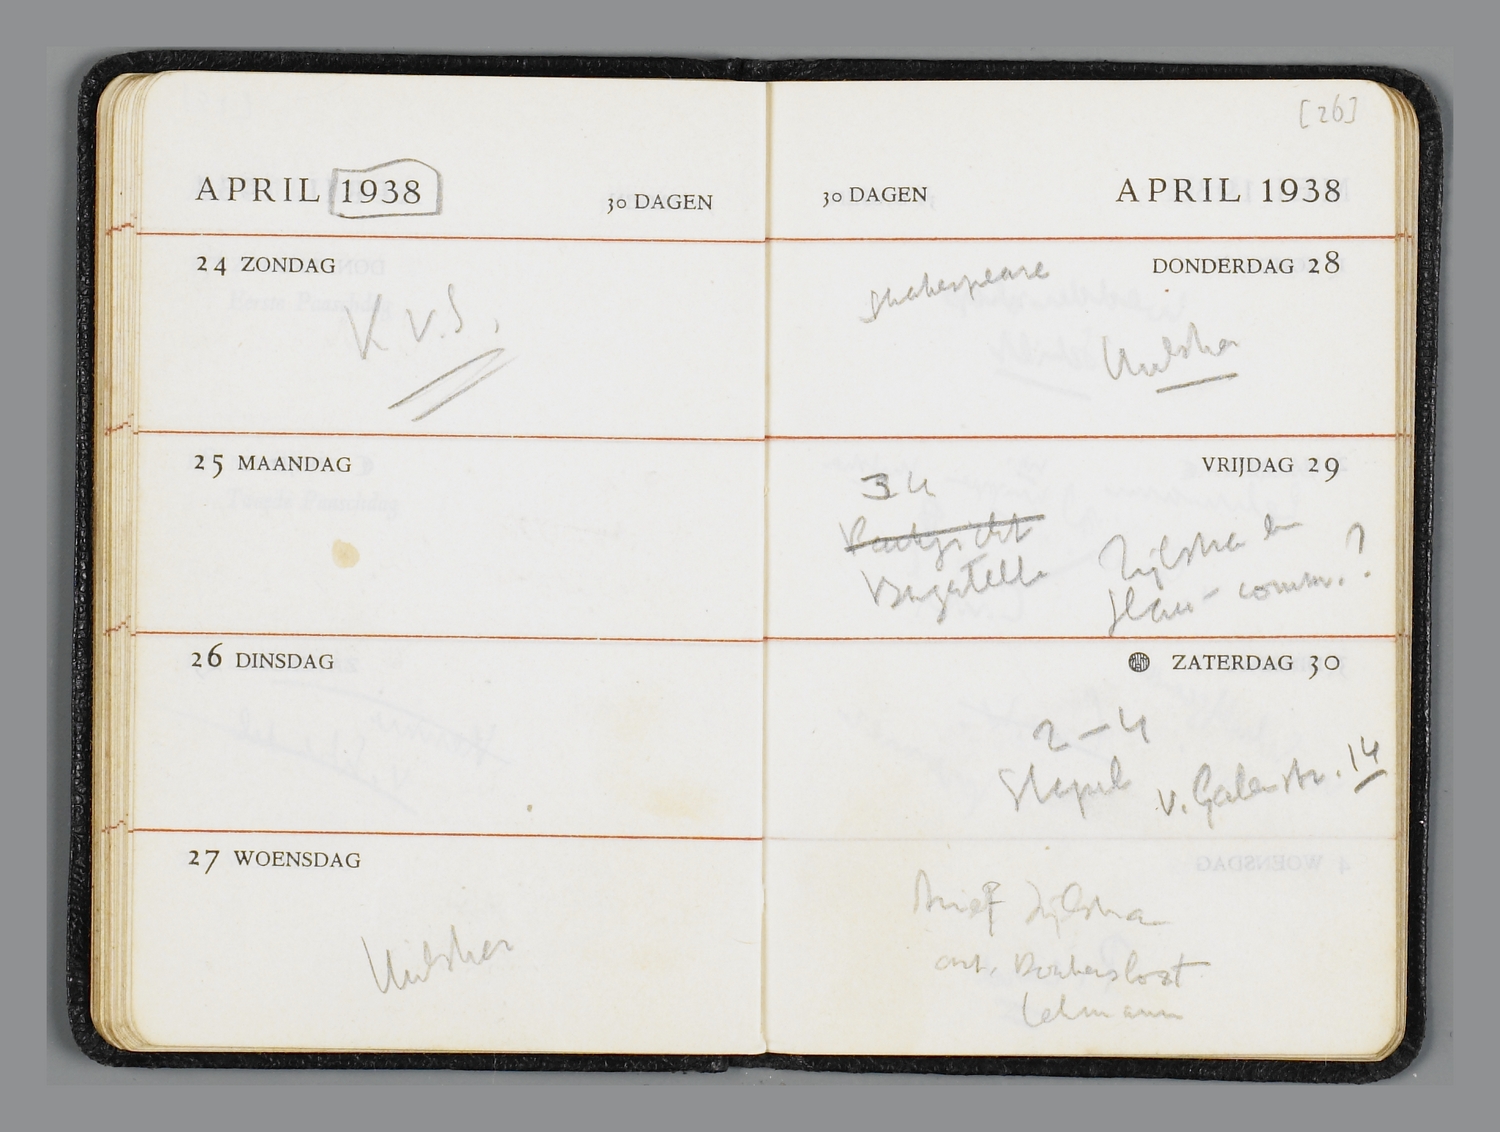 APRIL 1938
30 DAGEN
24 ZONDAG
K V.S.
25 MAANDAG
26 DINSDAG
27 WOENSDAG
[26]
30 DAGEN
APRIL 1938
DONDERDAG 28
Shakespeare
VRIJDAG 29
34
Bagatelle
Zijlstra
comm.?
ZATERDAG 30
2-4
Stapel v. Galenstr. 14
brief Zijlstra
ant.
Lehmann